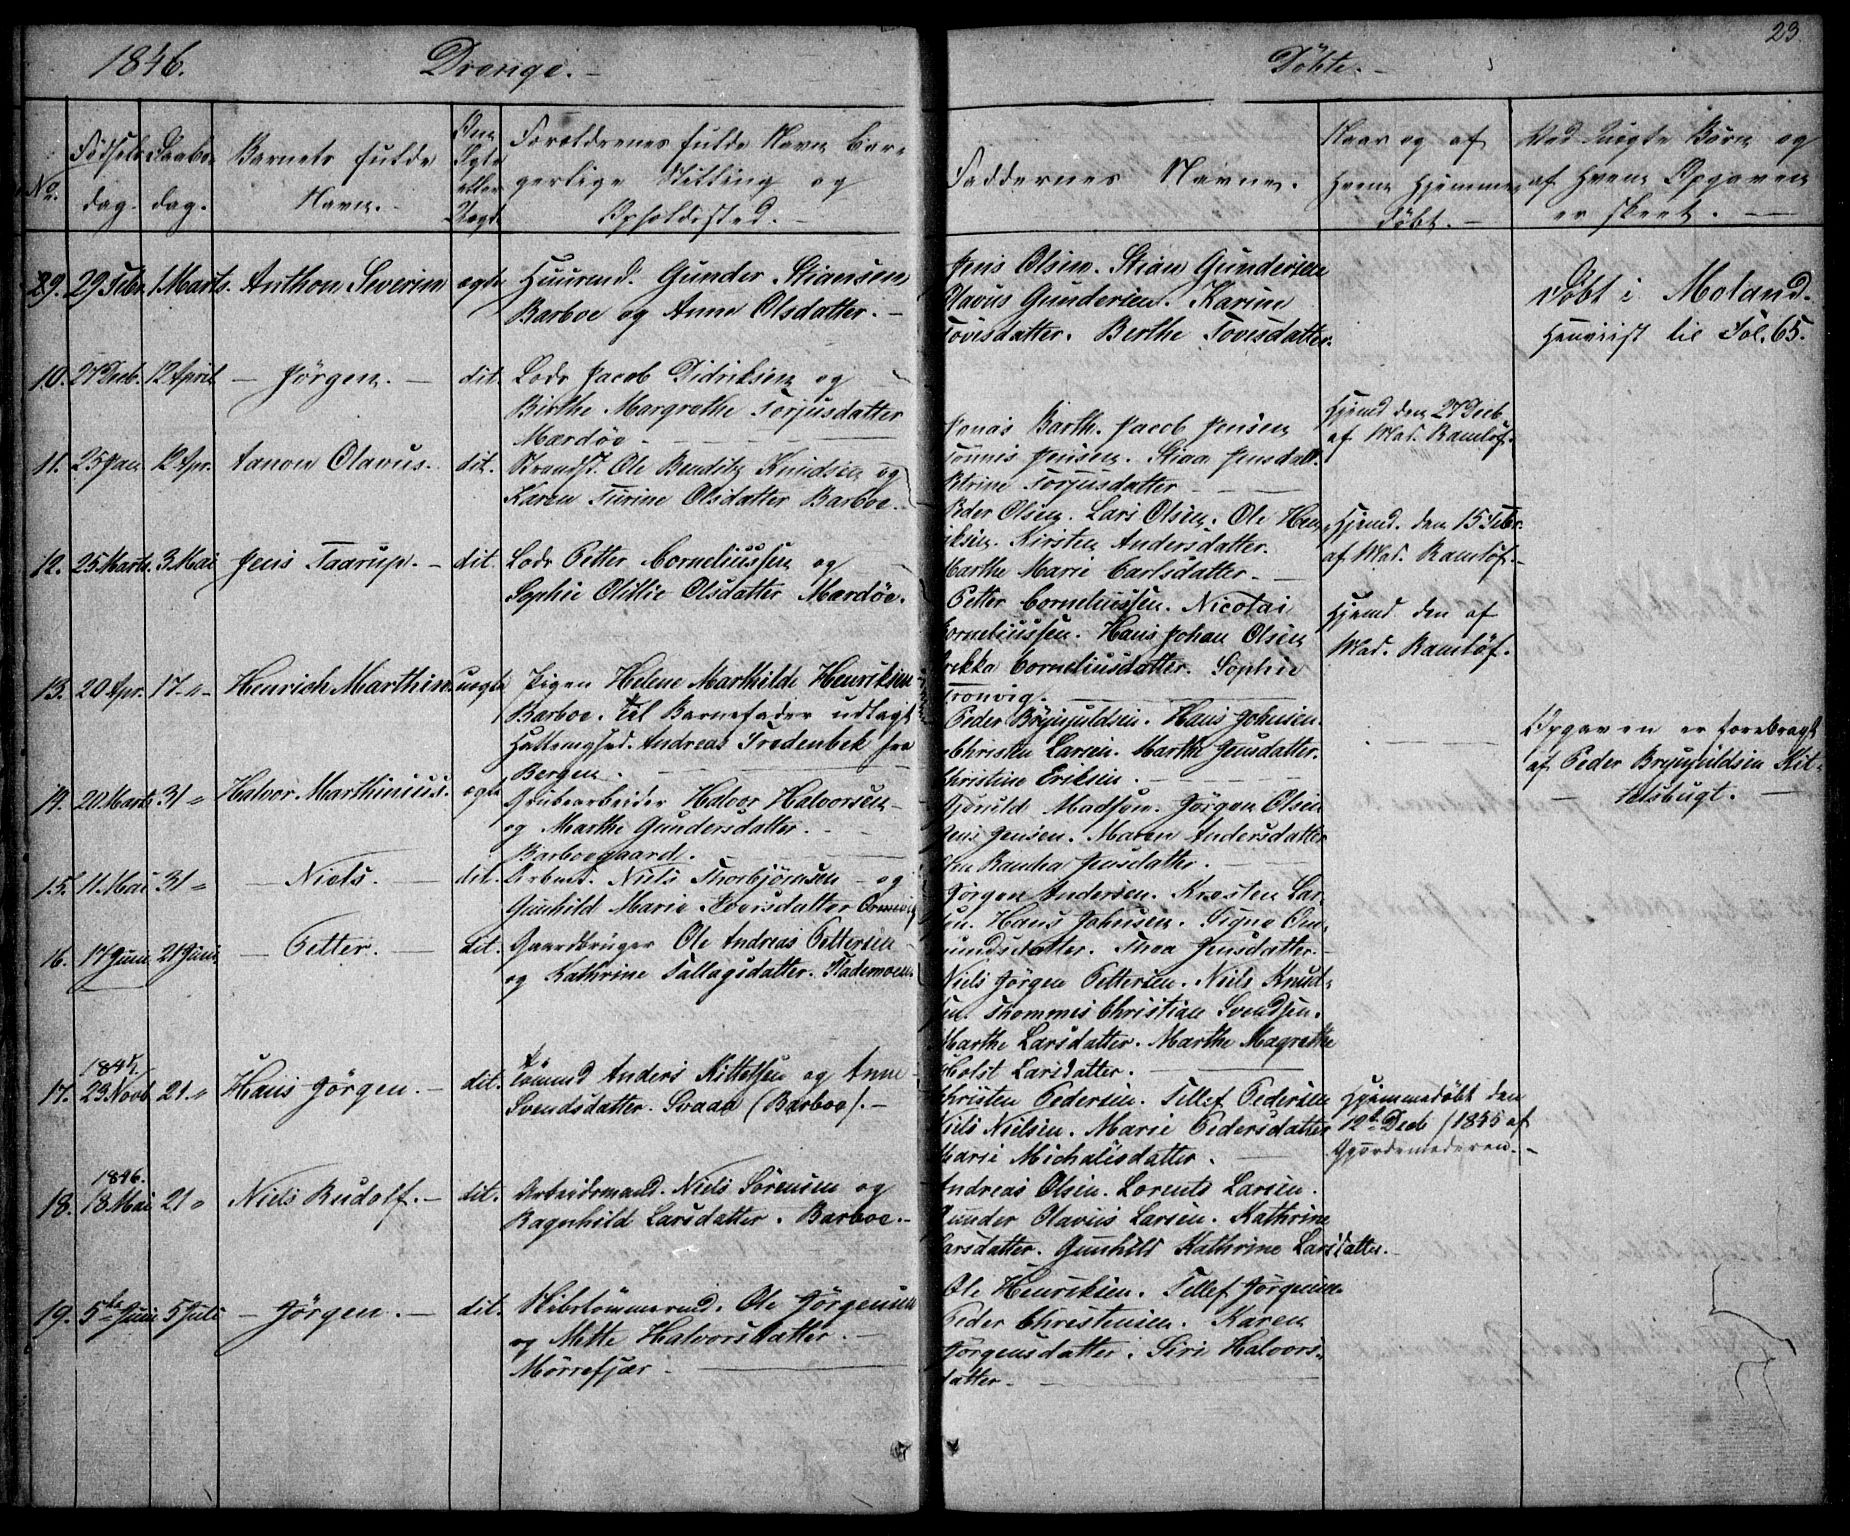 1846. Drenge. -
Døbte. - 23.
No. Fødsels Daabs Barnets fulde Om Ægte eller Uægt Forældrenes fulde Navn bor-
dag. dag. Navn. - gerlige Stilling og
Opholdssted. -
Faddernes Navne.
Naar og af
hvem hjemme
døbt. -
Ved Uægte Børn og
af hvem Opgaven
er skeet. -
29. 29 Febr. 1 Marts. Anthon Severin ægte Huusmd. Gunder Stiansen
Barboe og Anne Olsdatter. -
Jens Olsen. Stian Gundersen
Olavus Gundersen. Karine
Tovisdatter. Berthe Tovisdatter.
Døbt i Moland.
Henviist til Fol. 65.
10. 27 Decb. 12 April. - Jørgen. - dit. Lods Jacob Didriksen og
Birthe Margrethe Torjusdatter
Mærdøe. -
Jonas Barth. Jacob Jensen
Tønnis Jensen. Jensdatt.
Petrine Torjusdatter
Hjemd den 27 Decb
af Mad. Ramløf.
11. 25 Jan. 12 Apr. Aanon Olavus. dit. Ole Bendits Knudsen og
Karen Turine Olsdatter Barboe.
Peder Olsen. Lars Olsen. Ole Hen
riksen. Kirsten Andersdatter.
Marthe Marie Carlsdatter. -
Hjemd. den 15 Febr.
af Mad. Ramløf. -
12. 25 Marts. 3 Mai Jens Taarup. - dit. Lods Petter Corneliussen og
Sophie Olsdatter Mærdøe.
Petter Corneliussen. Nicolai
Corneliussen. Hans Johan Olsen
Corneliusdatter. Sophie
Tronvig. -
Hjemd den af
Mad. Ramløf.
13. 20 Apr. 17 " - Henrich Marthin. uægte Pigen Helene Marthilde Henriksen
Barboe. Til Barnefader udlagt
Andreas Fredenbek fra
Bergen. -
Peder Brynjuldsen. Hans Johnsen.
Christen Larsen. Marthe Jensdatter.
Christine Eriksen. -
Opgaven er forebragt
af Peder Brynjuldsen Kit-
telsbugt. -
14. 20 Marts 31 " Halvor Marthinius. ægte Grubearbeider Halvor Halvorsen
og Marthe Gundersdatter. -
Barboegaard.
Gjeruld Madsen. Jørgen Olsen
Jens Jensen. Maren Andersdatter
Jensdatter.
15. 11. Mai 31 " - Niels. - dit. Arbmd. Niels Thorbjørnsen - og
Gunhild Marie Iversdatter
Jørgen Andersen. Kresten Lar-
sen. Hans Johnsen. Signe Om-
mundsdatter. Thea Jensdatter. -
16. 17 Juni. 21 Juni - Petter. - dit. Gaardbruger Ole Andreas Pettersen
og Kathrine Tallagsdatter.
Niels Jørgen Pettersen. Niels Knud-
sen. Thommes Christian Svendsen.
Marthe Larsdatter. Marthe Magrethe
Holst Larsdatter. -
1845.
17. 29 Novb. 21 " Hans Jørgen. - dit. Tømmd Anders Kittelsen og Anne
Svendsdatter. Svaae (Barboe). -
Christen Pedersen. Tellef Pedersen
Niels Nielsen. Marie Pedersdatter
Marie Michalisdatter.
Hjemmedøbt den
12te Decb 1845 af
Gjordemoderen. -
1846.
18. 18 Mai 21 " Niels Rudolf. - dit. Arbeidsmand. Niels Sørensen og
Ragnhild Larsdatter. Barboe. -
Andreas Olsen. Lorents Larsen.
Gunder Olavius Larsen. Kathrine
Larsdatter. Gunhild Kathrine Larsdatter. -
19. 5te Juni 5 Juli - Jørgen. - dit. Skibstømmermd. Ole Jørgensen
og Mette Halvorsdatter. -
Mørrefjær -
Ole Henriksen. Tellef Jørgensen
Peder Christensen. Karen
Jørgensdatter. Siri Halvors-
datter -